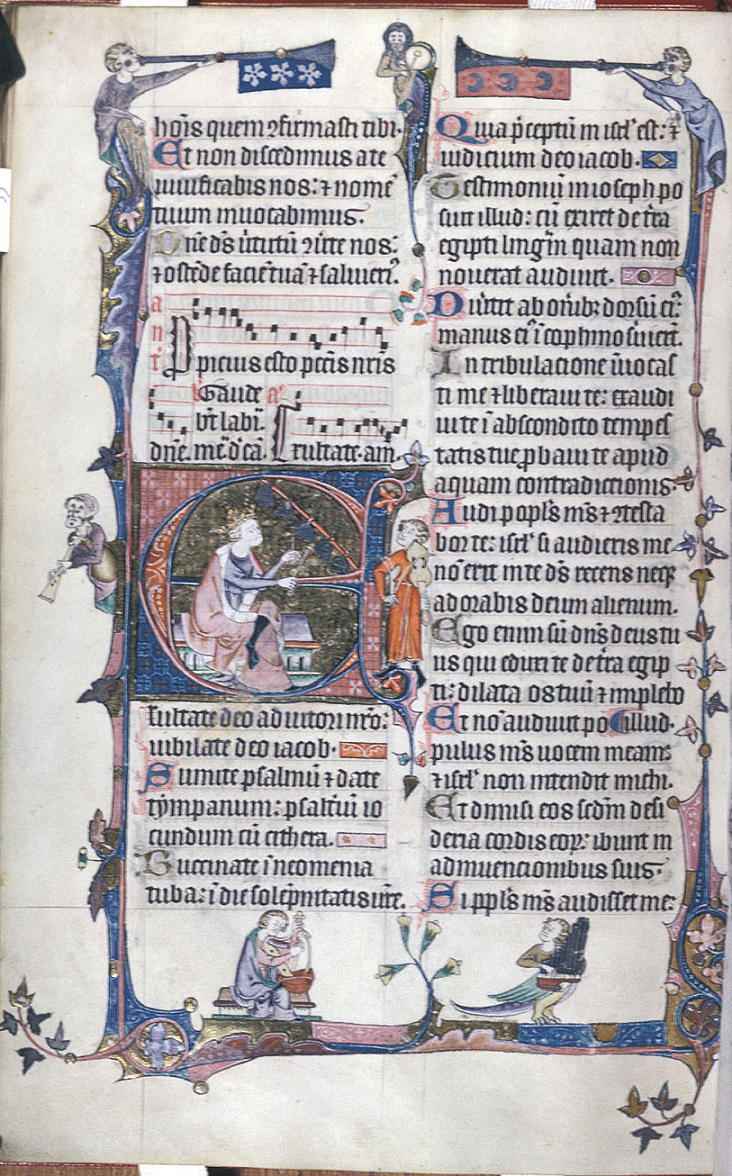 hoĩs quem ꝯfirmasti tibi.
Et non discedimus a te
uiuificabis nos: ⁊ nomē
tuum inuocabimus.
Dñe ds̃ uirtutū ꝯuerte nos:
⁊ ostēde faciē tuā ⁊ salui erī.
añ
Ppicius esto pctĩs nr̃is
Gaude a
bt̃ labi.
dñe. me d̃ cā. Exultate. am̃.
Exultate deo adiutori nr̃o:
iubilate deo iacob.
Sumite psalmū ⁊ date
tympanum: psaltiũ io
cundum cū cithera.
Buccinate ĩ neomenia
tuba: ĩ die solẽpnitatis ur̃e.
Quia p̃ceptũ in isrł est: ⁊
iudicium deo iacob.
Testimoniũ in ioseph po
suit illud: cũ exiret de t̃ra
egipti linguã quam non
nouerat audiuit.
Diuertit ab onĩbꝫ dorsũ eiꝰ:
manus eiꝰ ĩ cophino s̃uierũt.
In tribulacione ĩuocas
ti me ⁊ liberaui te: exaudi
ui te ĩ abscondito tempes
tatis tue ꝓbaui te apud
aquam contradictionis.
Audi popls̃ ms̃ ⁊ ꝯtesta
bor te: isrł si audieris me
nõ erit in te ds̃ recens neqꝫ
adorabis deum alienum.
Ego enim sũ dñs deus tu
us qui eduxi te de t̃ra egip
ti: dilata os tuũ ⁊ implebo
Et nõ audiuit po illud.
pulus ms̃ uocem meam:
⁊ isrł non intendit michi.
Et dimisi eos scd̃m desi
deria cordis eoꝝ: ibunt in
adinuencionibus suis.
Si ppls̃ ms̃ audisset me: